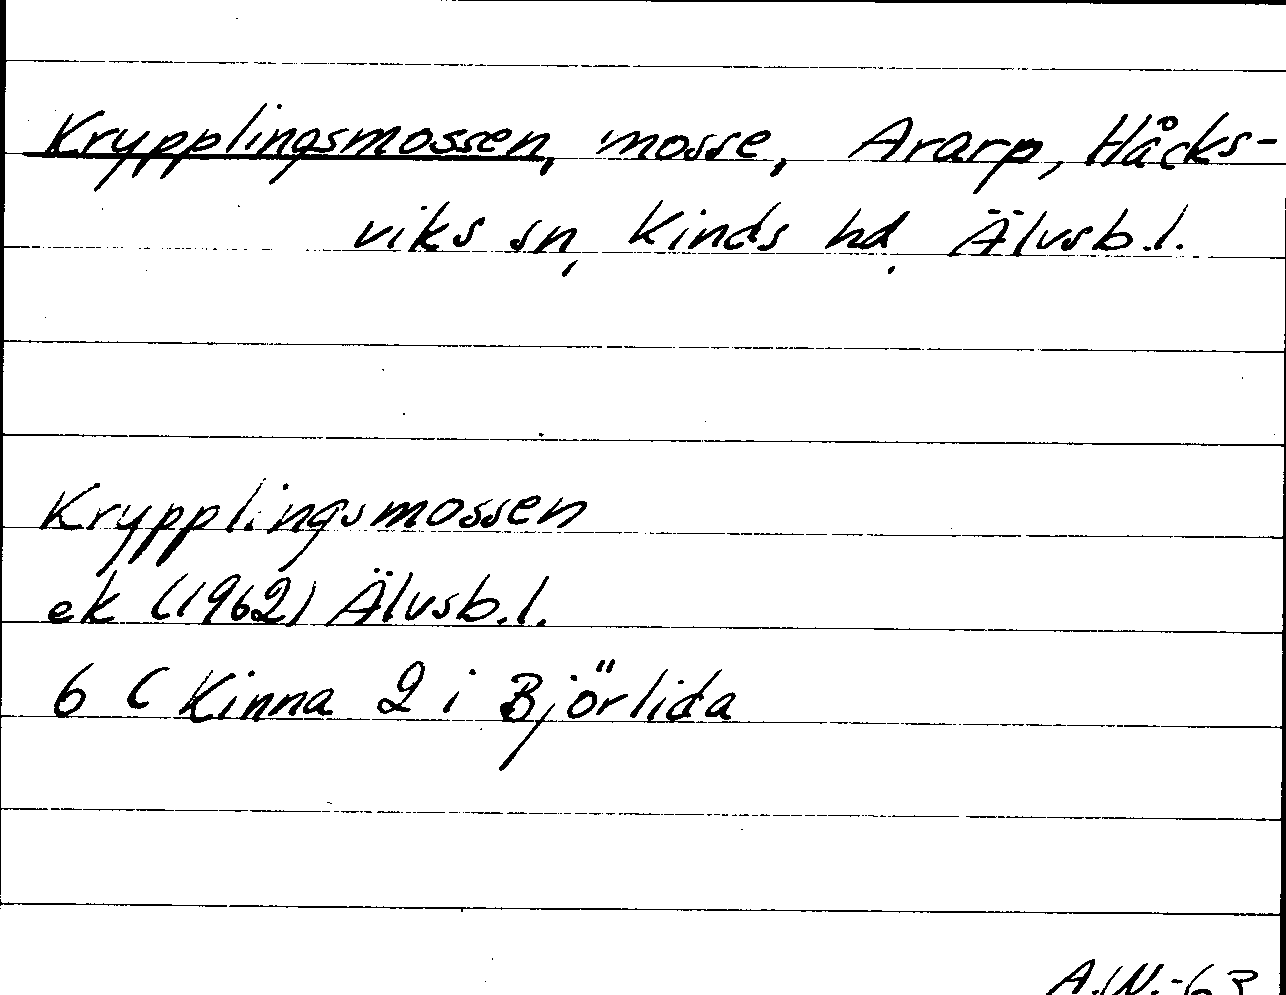 Krypplingsmossen, mosse, Ararp, Håcks-
viks sn, Kinds hd, Älvsb.l.
Krypplingsmossen
ek (1962) Älvsb.l.
6 C Kinna 2 i Björlida
A.W.-63